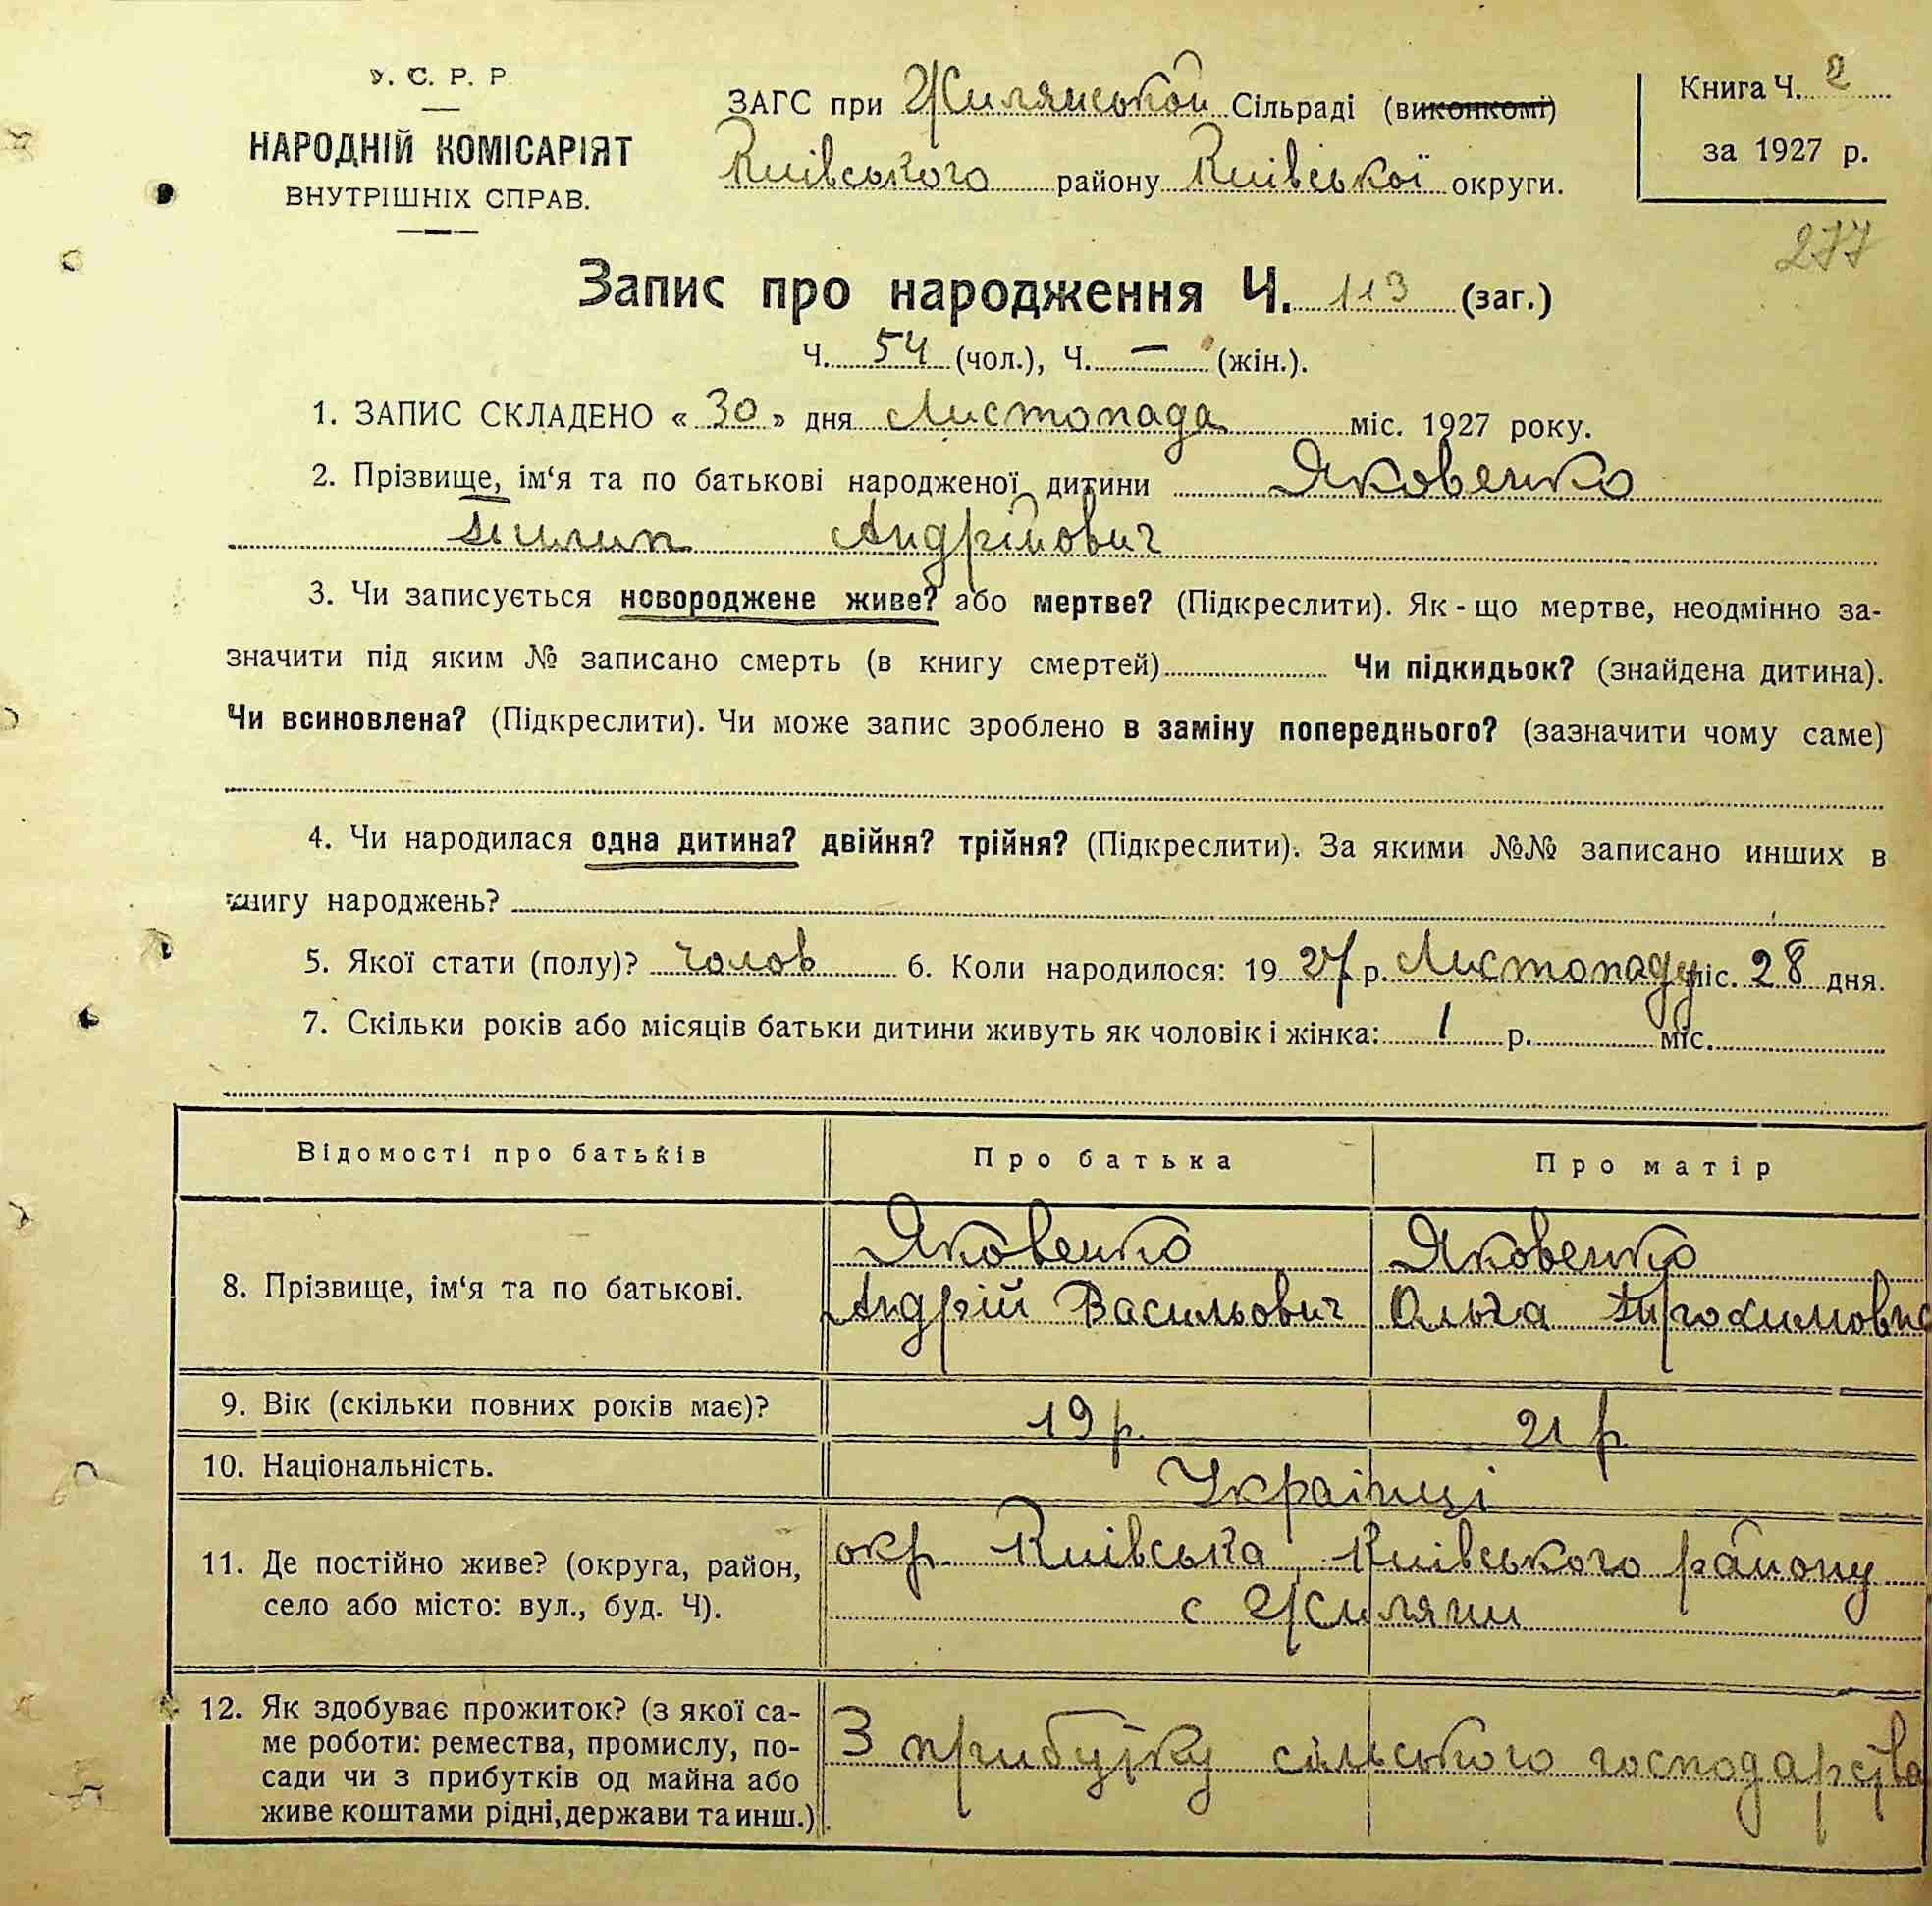 У. С. Р. Р
НАРОДНІЙ КОМІСАРІЯТ
ВНУТРІШНІХ СПРАВ.
ЗАГС при Жилянській Сільраді (виконкомі)
Київського району Київської округи.
Книга Ч. 2
за 1927 р.
277
Запис про народження Ч. 113 (заг.)
Ч. 54 (чол.), Ч. — (жін.).
1. ЗАПИС СКЛАДЕНО « 30 » дня Листопада міс. 1927 року.
2. Прізвище, ім‘я та по батькові народженої дитини Яковенко
Пилип Андрійович
3. Чи записується новороджене живе? або мертве? (Підкреслити). Як - що мертве, неодмінно за-
значити під яким № записано смерть (в книгу смертей) Чи підкидьок? (знайдена дитина).
Чи всиновлена? (Підкреслити). Чи може запис зроблено в заміну попереднього? (зазначити чому саме)
4. Чи народилася одна дитина? двійня? трійня? (Підкреслити). За якими №№ записано инших в
книгу народжень?
5. Якої стати (полу)? чолов 6. Коли народилося: 19 27 р. Листопаду міс. 28 дня.
7. Скільки років або місяців батьки дитини живуть як чоловік і жінка: 1 р. міс.
Відомості про батьків Про батька Про матір
8. Прізвище, ім‘я та по батькові.
Яковенко Яковенко
Андрій Васильович Ольга
9. Вік (скільки повних років має)? 19 р. 21 р
10. Національність. Українці
11. Де постійно живе? (округа, район,
село або місто: вул., буд. Ч).
окр. Київська, Київського району
с Жиляни
12. Як здобуває прожиток? (з якої са-
ме роботи: ремества, промислу, по-
сади чи з прибутків од майна або
живе коштами рідні, держави та инш.)
З прибутку сільського господарства